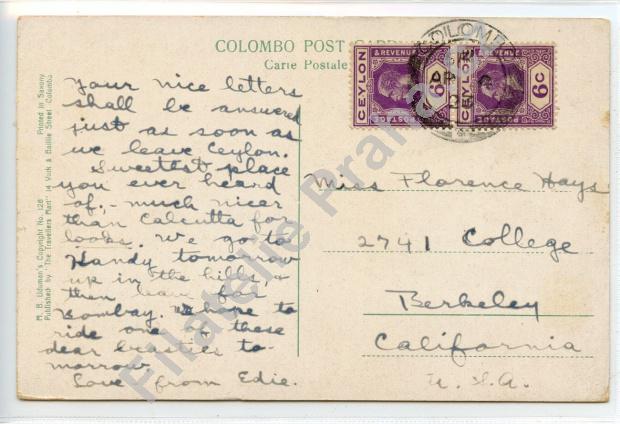 COLOMBO POST CARD
Carte Postale
Your nice letters
shall be answered
just as soon as
we leave Ceylon.
Sweetest place
you ever heard
of, - much nicer
than Calcutta for
looks. We go to
Kandy tomorrow
up in the hills, &
then leave for
Bombay. We hope to
ride one of these
dear beasties to-
morrow
Love from Edie.
Miss Florence Hays
2741 College
Berkeley
California
U.S.A.
CEYLON
POSTAGE
& REVENUE
6C
CEYLON
POSTAGE
& REVENUE
6C
COLOMBO
M. B. Uduman's Copyright No. 128
Printed in Saxony
Published by "The Travellers Mart" 14 York & Baillie Street Colombo
Filatelie Prana